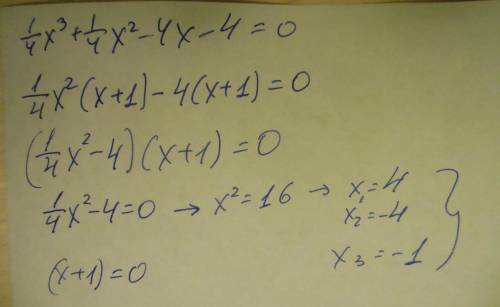 1/4 x³ + 1/4 x² - 4x - 4 = 0
1/4 x² (x+1) - 4(x+1) = 0
(1/4 x² - 4) (x+1) = 0
1/4 x² - 4 = 0 → x² = 16 → x₁ = 4
x₂ = -4
(x+1) = 0 x₃ = -1 }